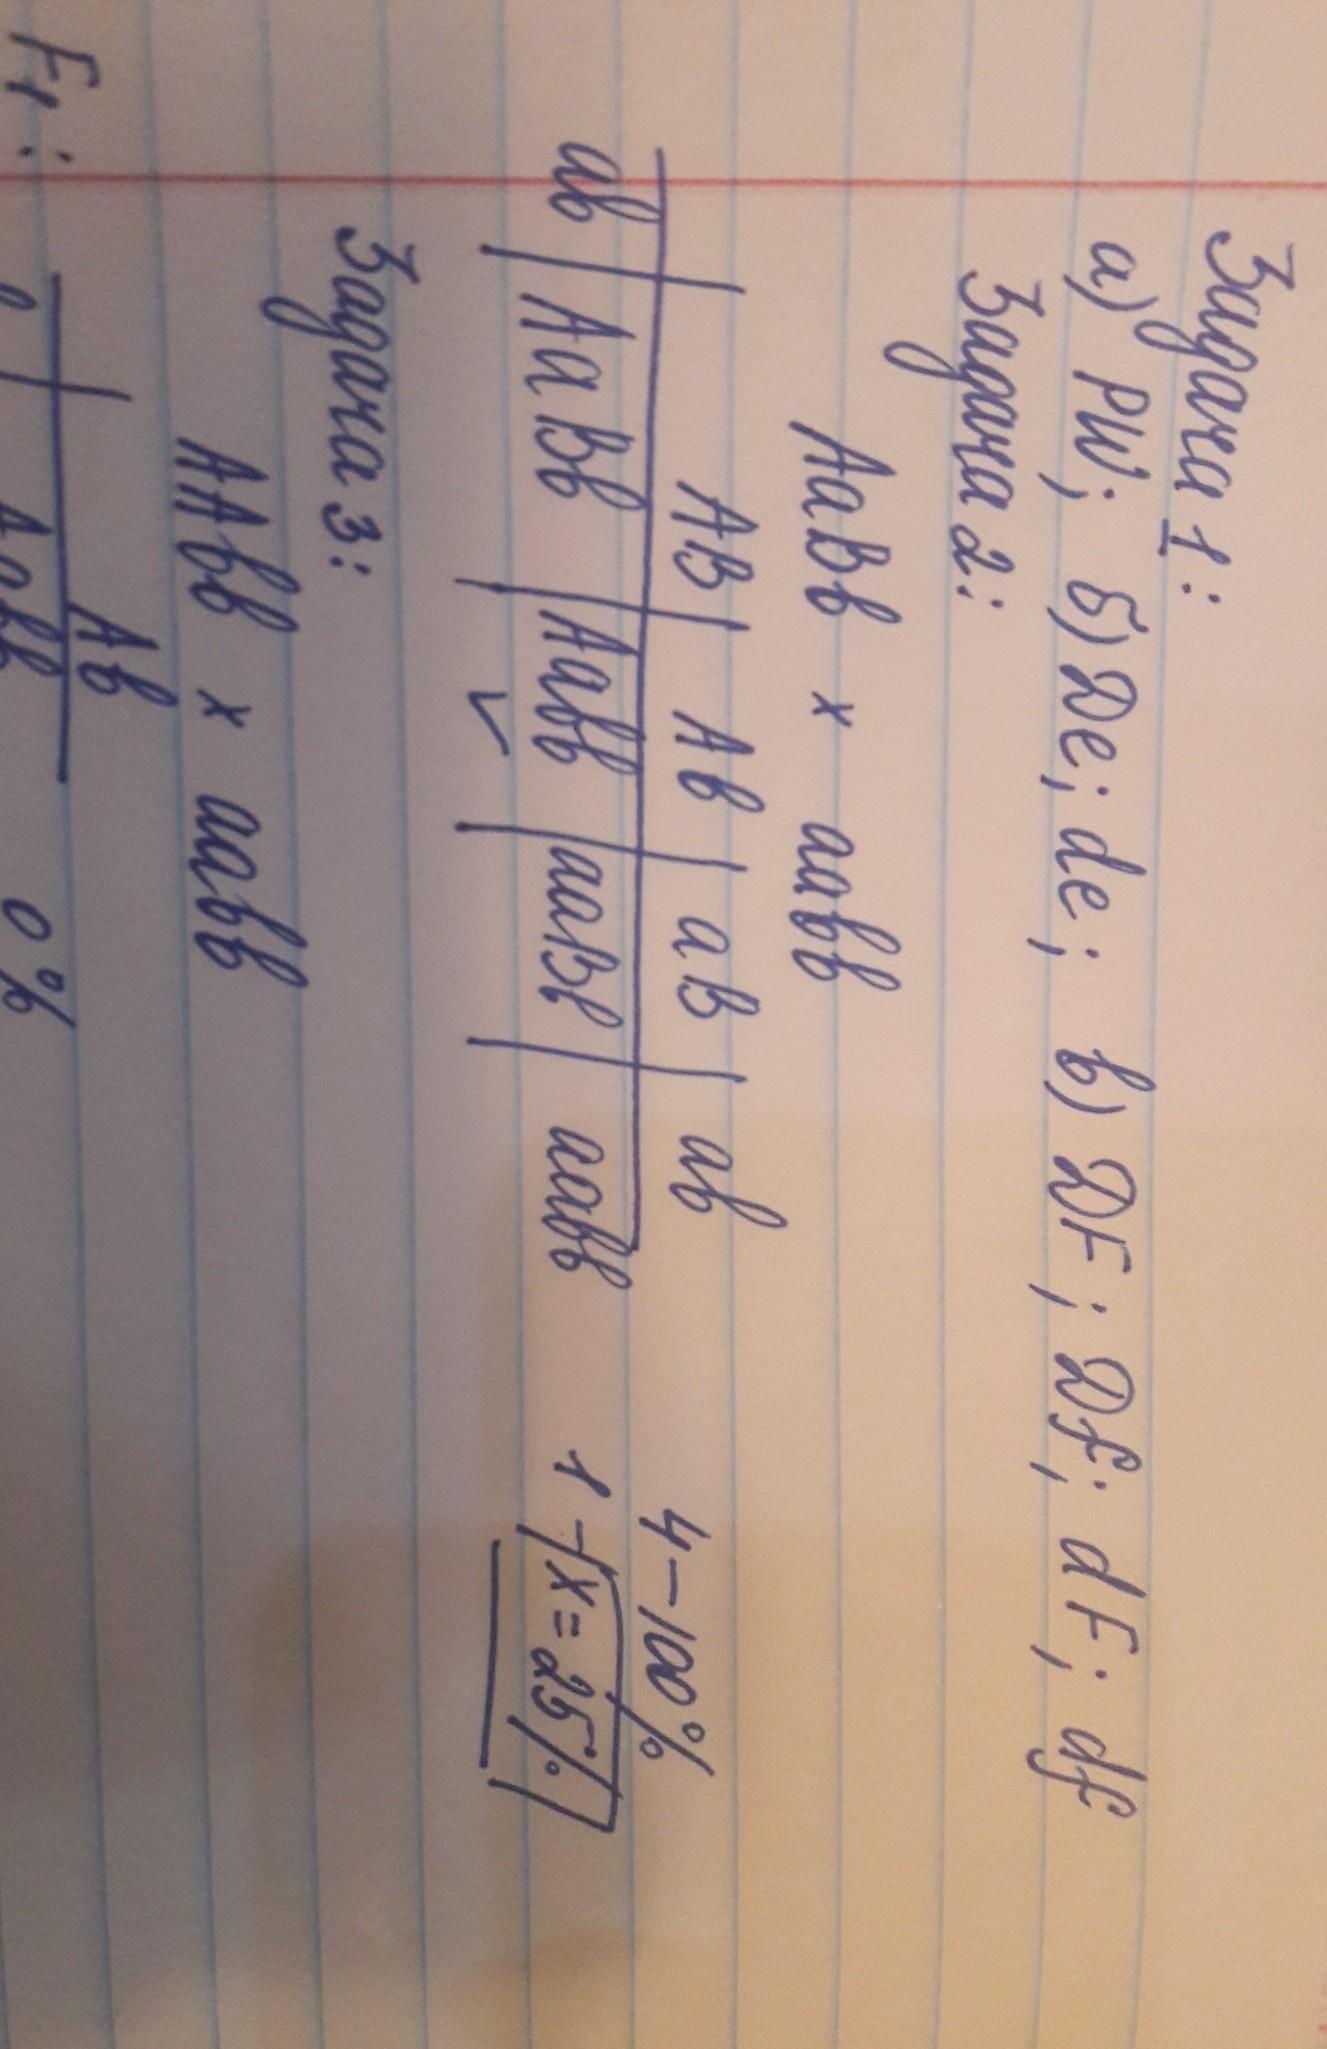 Задача 1:
а) PW; б) De; de; в) DF; Df; dF; df
Задача 2:
AaBb x aabb
AB | Ab | aB | ab 4 – 100%
ab | AaBb | Aabb | aaBb | aabb 1 – x = 25%
✓
Задача 3:
AAbb x aabb
Ab
F1: Aabb 0%